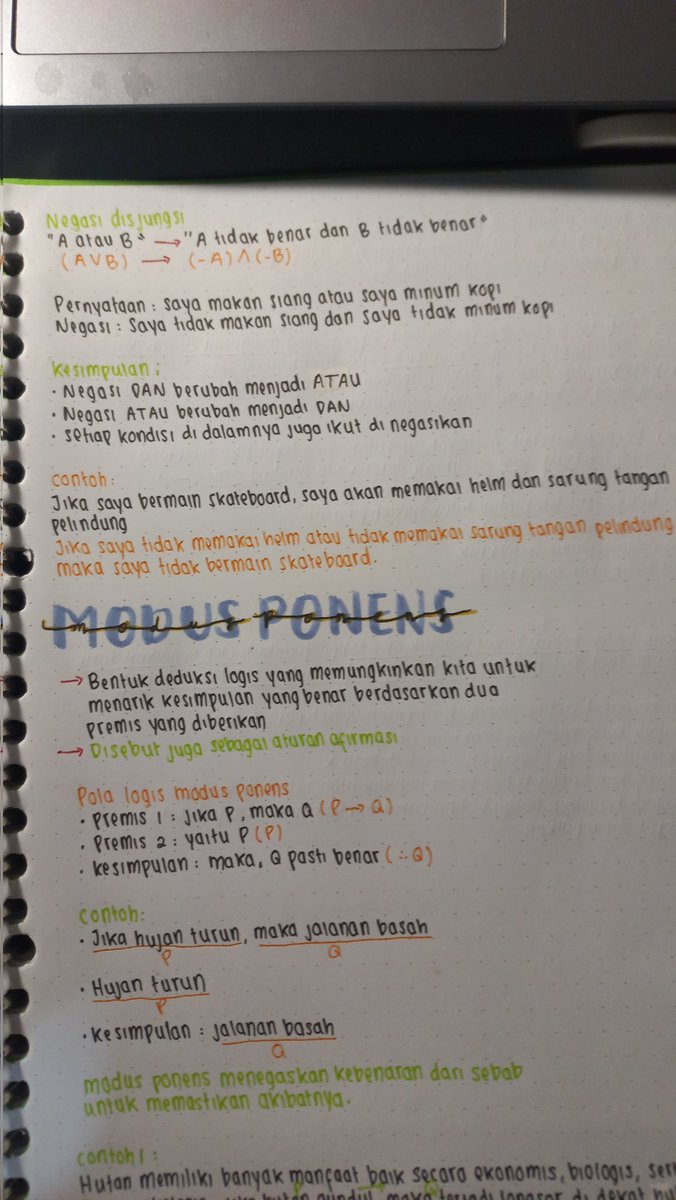 Negasi disjungsi
"A atau B" → "A tidak benar dan B tidak benar"
(A∨B) → (-A)∧(-B)
Pernyataan : saya makan siang atau saya minum kopi
Negasi : Saya tidak makan siang dan saya tidak minum kopi
Kesimpulan :
• Negasi DAN berubah menjadi ATAU
• Negasi ATAU berubah menjadi DAN
• setiap kondisi di dalamnya juga ikut di negasikan
contoh:
Jika saya bermain skateboard, saya akan memakai helm dan sarung tangan
pelindung
Jika saya tidak memakai helm atau tidak memakai sarung tangan pelindung
maka saya tidak bermain skateboard.
MODUS PONENS
modus ponens
→ Bentuk deduksi logis yang memungkinkan kita untuk
menarik kesimpulan yang benar berdasarkan dua
premis yang diberikan
→ Disebut juga sebagai aturan afirmasi
Pola logis modus ponens
• Premis 1 : Jika P, maka Q (P → Q)
• Premis 2 : yaitu P (P)
• kesimpulan : maka, Q pasti benar (∴Q)
contoh:
• Jika hujan turun, maka jalanan basah
P Q
• Hujan turun
P
• kesimpulan : jalanan basah
Q
modus ponens menegaskan kebenaran dari sebab
untuk memastikan akibatnya.
contoh 1 :
Hutan memiliki banyak manfaat baik secara ekonomis, biologis,